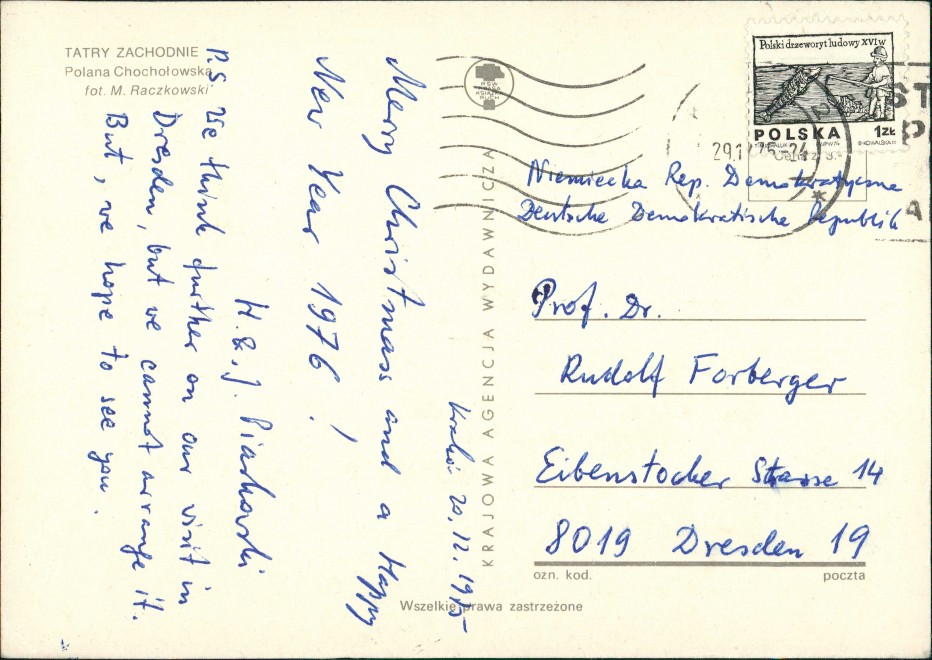 TATRY ZACHODNIE
Polana Chochołowska
fot. M. Raczkowski
Kraków 20.12.1975
Merry Christmass and a Happy
New Year 1976!
H. & J. Piarkowski
P.S. We think further on our visit in
Dresden, but we cannot arrange it.
But, we hope to see you.
KRAJOWA AGENCJA WYDAWNICZA
RSW
PRASA
KSIĄŻKA
RUCH
Polski drzeworyt ludowy XVI w
POLSKA 1 ZŁ
29.12.75-24
Niemiecka Rep. Demokratyczna
Deutsche Demokratische Republik
Prof. Dr.
Rudolf Forberger
Eibenstocker Strasse 14
8019 Dresden 19
ozn. kod. poczta
Wszelkie prawa zastrzeżone